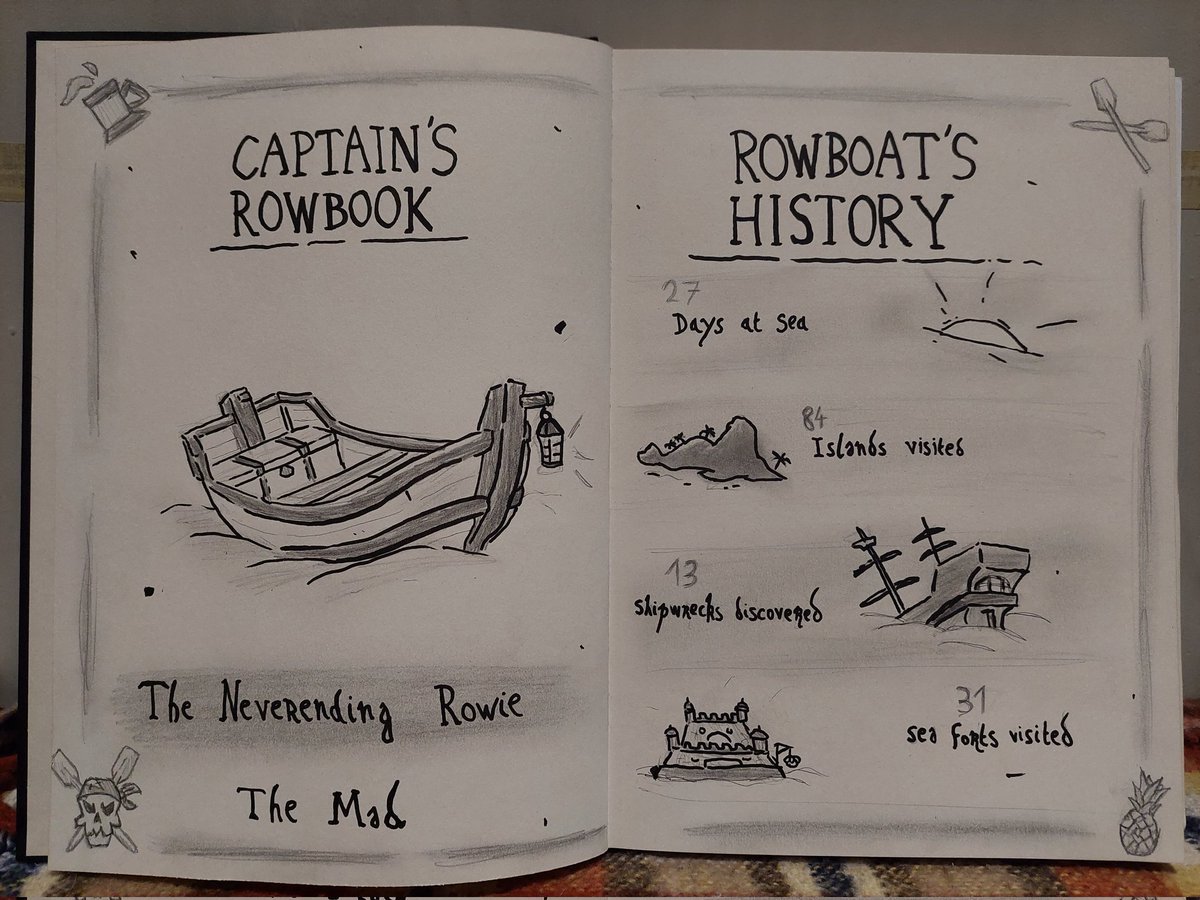 CAPTAIN'S
ROWBOOK
The Neverending Rowie
The Mad
ROWBOAT'S
HISTORY
27
Days at sea
84
Islands visited
13
shipwrecks discovered
31
sea forts visited